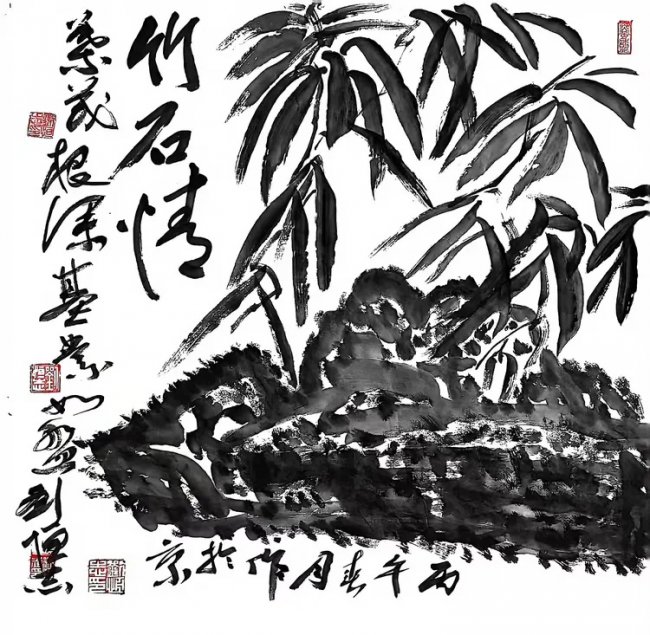 竹石情
葉茂根深基業如盤
丙午春月作於京